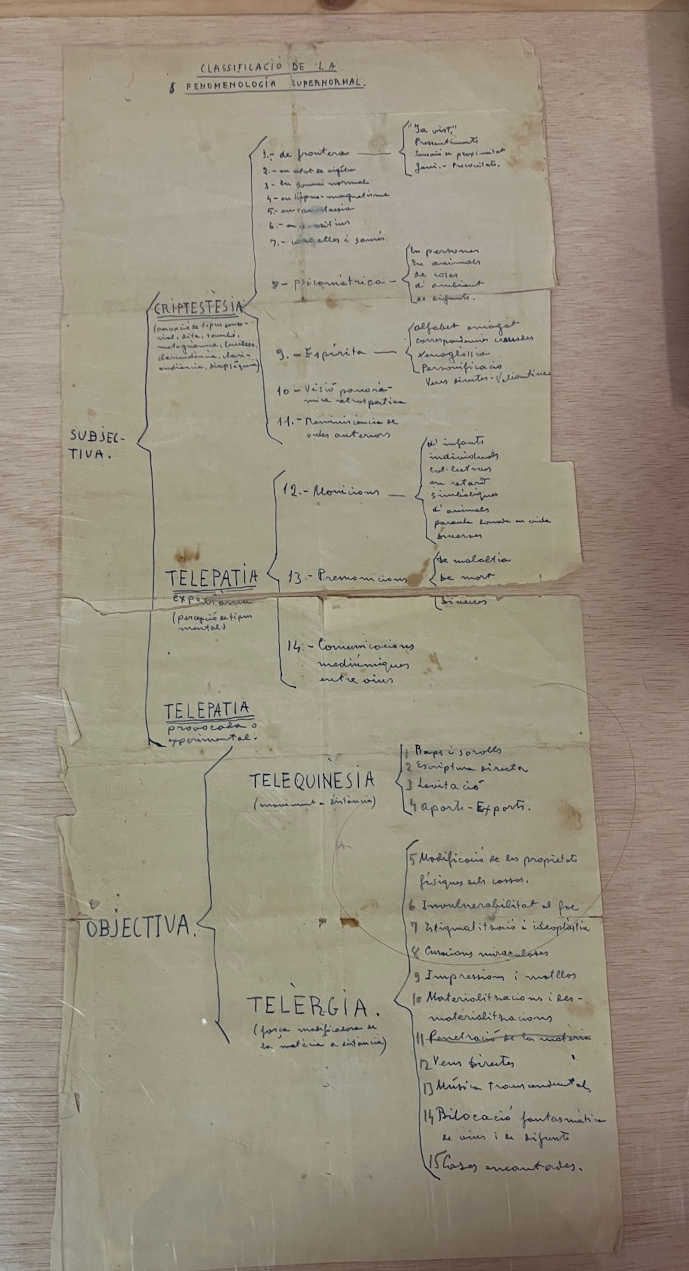 CLASSIFICACIÓ DE LA
FENOMENOLOGÍA SUPERNORMAL.
SUBJEC-
TIVA.
CRIPTESTÈSIA
(percepció de tipus senso-
rial, dita, també,
metagnomia, lucidesa,
clarividència, clari-
audiència, diapsíquia)
1.- de frontera
"Ja vist"
Pressentiments
Sensació de proximitat
Geni.- Precocitats.
2.- en estat de vigília
3.- En somni normal
4.- en hipno-magnetisme
5.- en
6.- en
7.- i saurís
8.- psicomètrica
En persones
En animals
de coses
d'ambient
de difunts.
9.- Espírita
alfabet amagat
correspondències creuades
xenoglossia
Personificació
Veus directes.-
10.- Visió panorà-
mica retrospectiva
11.- Reminiscència de
vides anteriors
TELEPATÍA
(percepció de tipus
mental)
12.- Monicions
d'infants
individuals
col·lectives
en retard
simbòliques
d'animals
paraula donada en vida
diverses
13.- Premonicions
de malaltia
de mort
diverses
14.- Comunicacions
mediúmniques
entre vius
TELEPATIA
provocada o
experimental.
OBJECTIVA.
TELEQUINÈSIA
(moviment a distància)
1 Raps i sorolls
2 Escriptura directa
3 Levitació
4 Aports - Exports.
TELÈRGIA.
(força modificadora de
la matèria a distància)
5 Modificació de les propietats
físiques dels cossos.
6 Invulnerabilitat al foc
7 Estigmatització i ideoplàstia
8 Curacions miraculoses
9 Impressions i motllos
10 Materialitzacions i des-
materialitzacions
11 Penetració de la matèria
12 Veus directes
13 Música transcendental
14 Bilocació fantasmàtica
de vius i de difunts
15 Cases encantades.